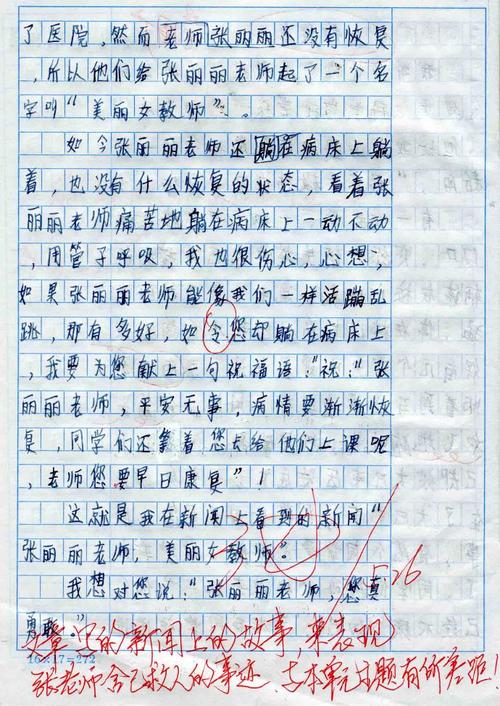 了医院，然而老师张丽丽还没有恢复
，所以他们给张丽丽老师起了一个名
字叫“美丽女教师”。
如今张丽丽老师还躺在病床上躺
着，也没有什么恢复的状态，看着张
丽丽老师痛苦地躺在病床上一动不动
，用管子呼吸，我也很伤心，心想，
如果张丽丽老师能像我们一样活蹦乱
跳，那有多好，如今您却躺在病床上
，我要为您献上一句祝福语：“祝：“张
丽丽老师，平安无事，病情要渐渐恢
复，同学们还等着您去给他们上课呢
，老师您要早日康复”！
这就是我在新闻上看到的新闻“
张丽丽老师，美丽女教师”。
我想对您说：“张丽丽老师，您真
勇敢
5.26
的新闻上的故事，来表现
16×17=272
张老师舍己救人的事迹，与本单元习题有所差距！